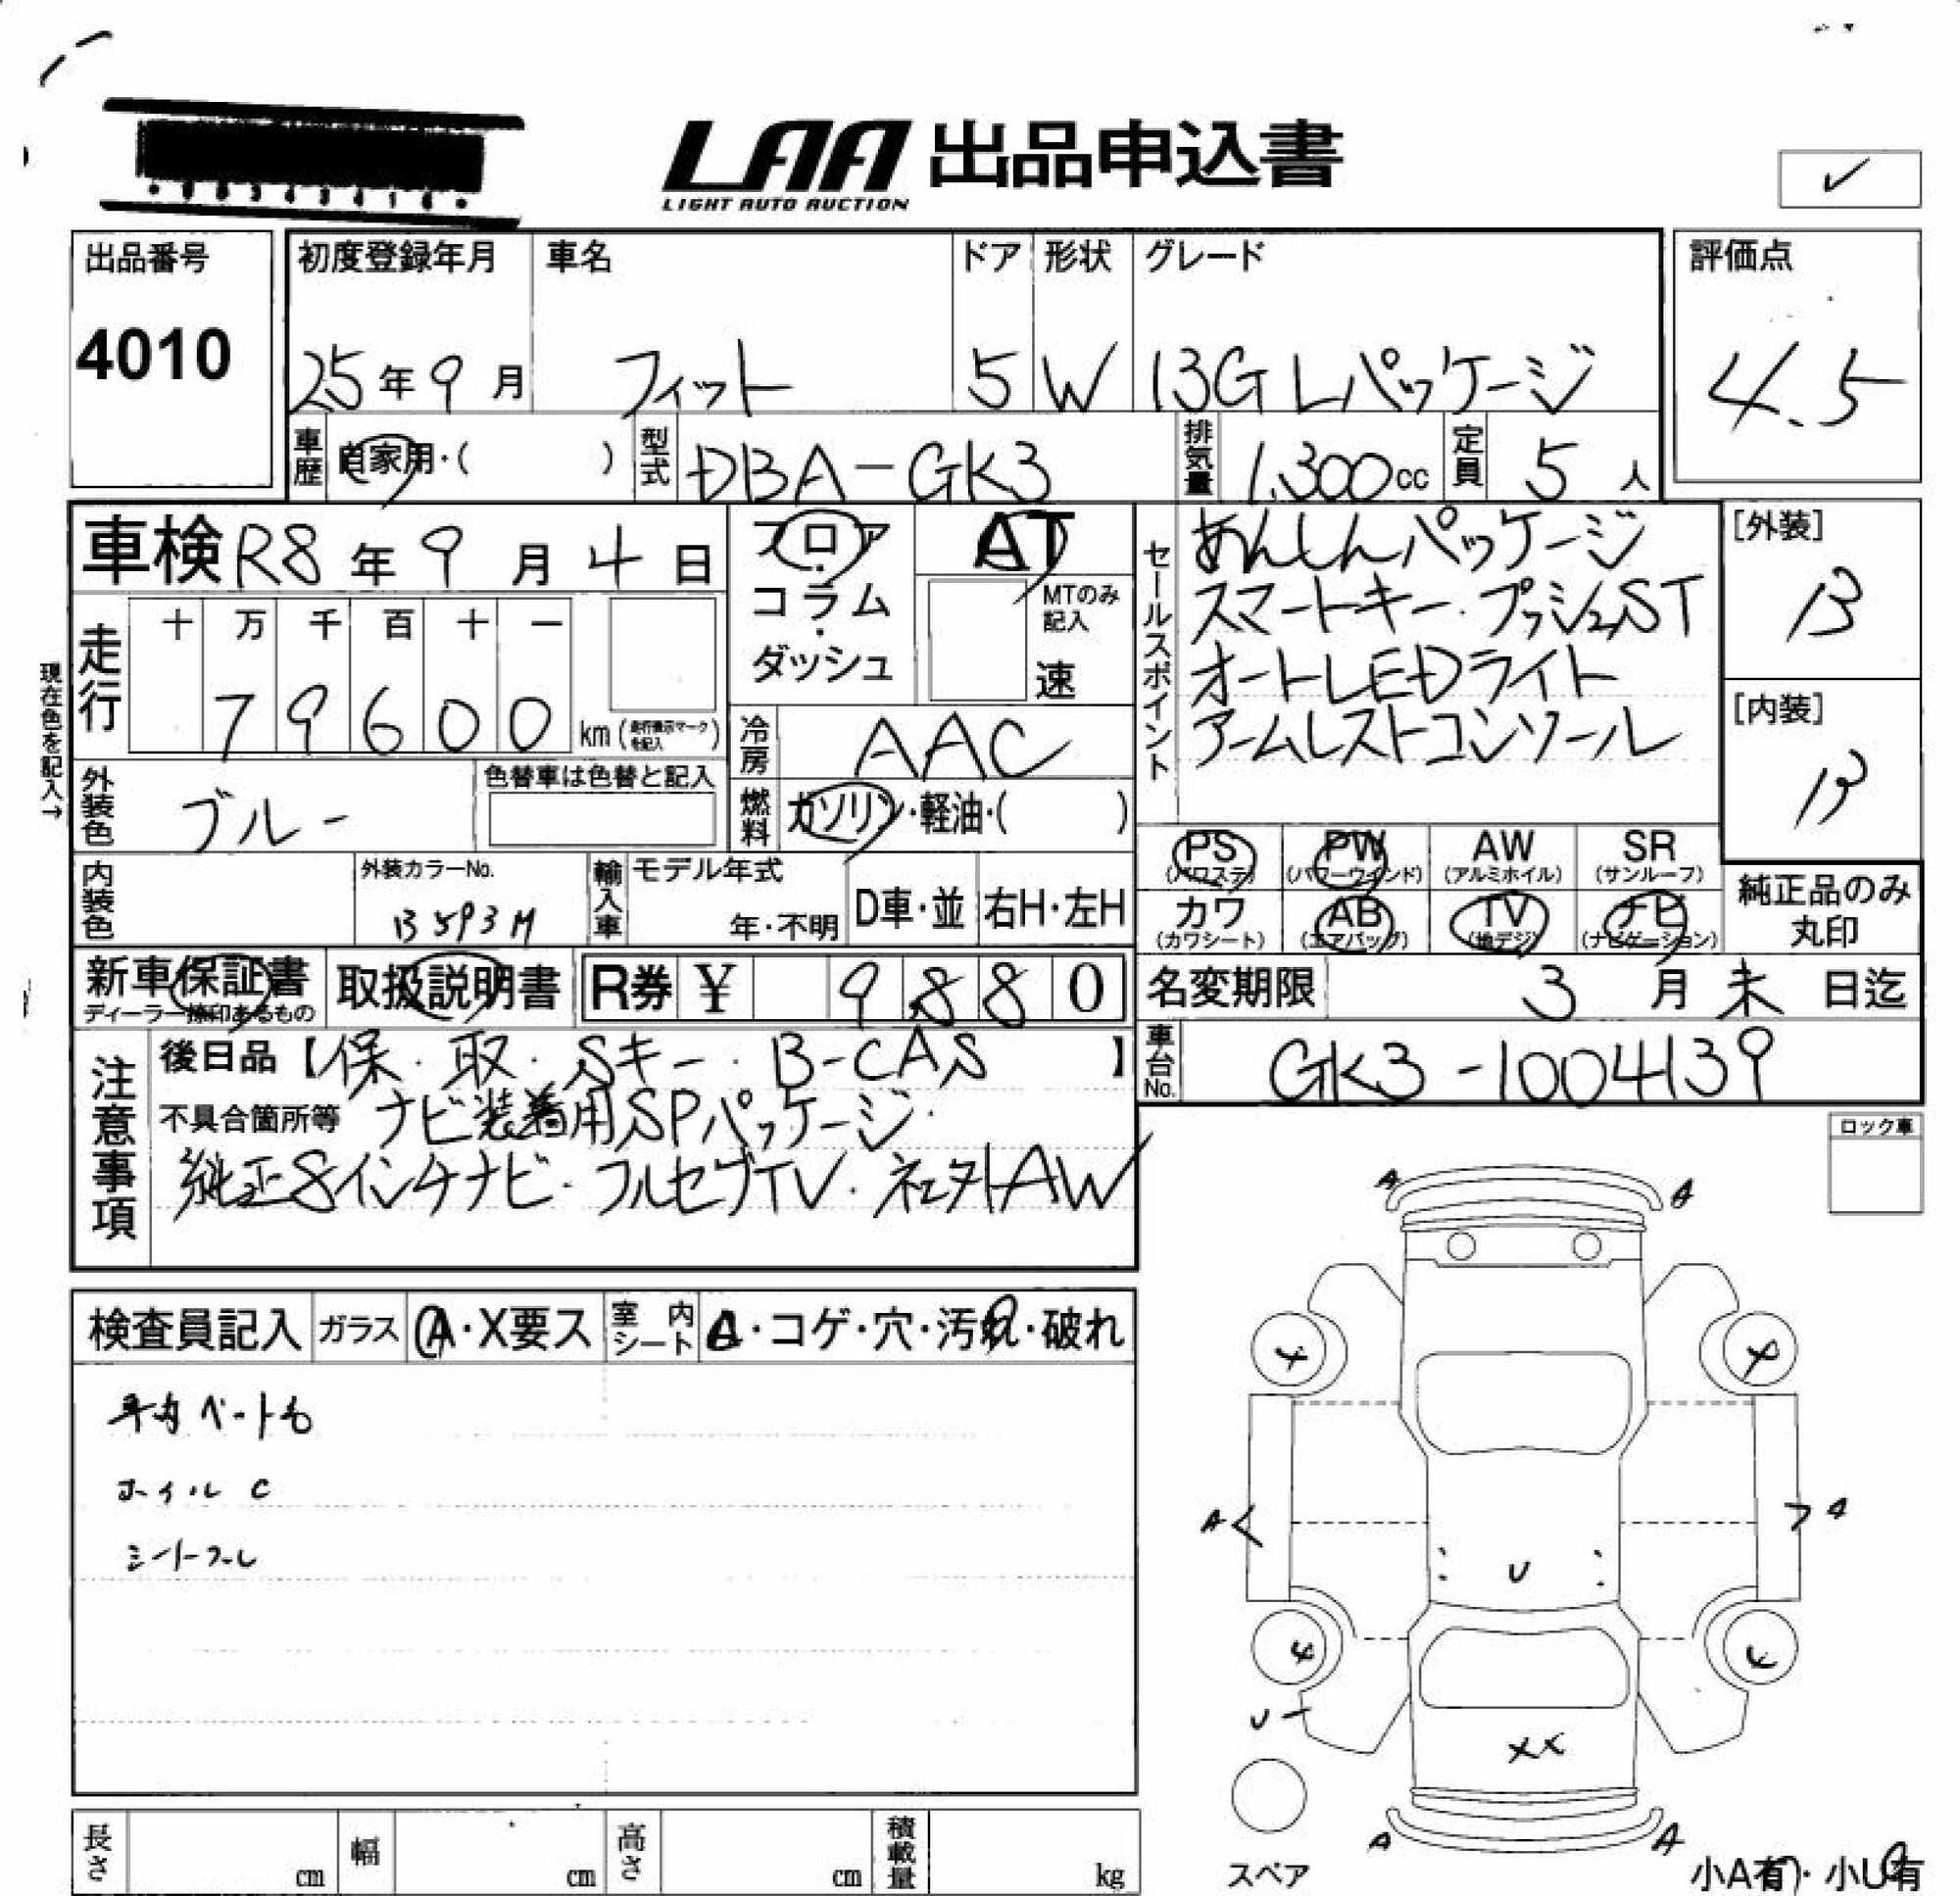 LAA 出品申込書
LIGHT AUTO AUCTION
出品番号
4010
初度登録年月 車名 ドア 形状 グレード
25年9月 フィット 5 W 13G Lパッケージ
評価点
4.5
車歴 自家用・( ) 型式 DBA-GK3 排気量 1,300cc 定員 5人
車検 R8年9月4日
フロア・コラム・ダッシュ
AT
MTのみ記入
速
走行 十 万 千 百 十 一
79600 km(走行表示マークを記入)
現在色を記入→
冷房 AAC
外装色 ブルー 色替車は色替と記入
燃料 ガソリン・軽油・( )
内装色 外装カラーNo. B593M
輸入車 モデル年式 年・不明 D車・並 右H・左H
セールスポイント
あんしんパッケージ
スマートキー・プッシュST
オートLEDライト
アームレストコンソール
[外装]
B
[内装]
B
PS (パワステ) PW (パワーウインド) AW (アルミホイル) SR (サンルーフ)
カワ (カワシート) AB (エアバッグ) TV (地デジ) ナビ (ナビゲーション)
純正品のみ丸印
新車保証書 ディーラー捺印あるもの 取扱説明書 R券 ¥ 9880
名変期限 3月末日迄
車台No. GK3-1004139
注意事項
後日品【保・取・Sキー・B-CAS】
不具合箇所等 ナビ装着用SPパッケージ・
純正8インチナビ・フルセグTV・社外AW
ロック車
検査員記入 ガラス A・X要ス 室内シート A・コゲ・穴・汚れ・破れ
ホイル C
A A
A A
U
U
XX
A A
スペア
小A有・小U有
長さ cm 幅 cm 高さ cm 積載量 kg